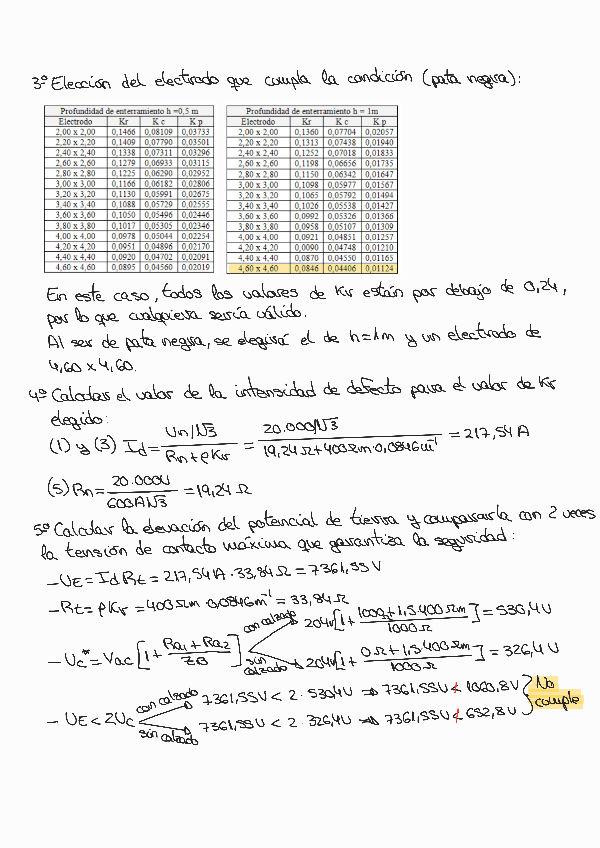 3º Elección del electrodo que cumpla la condición (pata negra):
Profundidad de enterramiento h =0,5 m
Electrodo Kr K c K p
2,00 x 2,00 0,1466 0,08109 0,03733
2,20 x 2,20 0,1409 0,07790 0,03501
2,40 x 2,40 0,1338 0,07311 0,03296
2,60 x 2,60 0,1279 0,06933 0,03115
2,80 x 2,80 0,1225 0,06290 0,02952
3,00 x 3,00 0,1166 0,06182 0,02806
3,20 x 3,20 0,1130 0,05991 0,02675
3,40 x 3,40 0,1088 0,05729 0,02555
3,60 x 3,60 0,1050 0,05496 0,02446
3,80 x 3,80 0,1017 0,05305 0,02346
4,00 x 4,00 0,0978 0,05044 0,02254
4,20 x 4,20 0,0951 0,04896 0,02170
4,40 x 4,40 0,0920 0,04702 0,02091
4,60 x 4,60 0,0895 0,04560 0,02019
Profundidad de enterramiento h = 1m
Electrodo Kr K c K p
2,00 x 2,00 0,1360 0,07704 0,02057
2,20 x 2,20 0,1313 0,07438 0,01940
2,40 x 2,40 0,1252 0,07018 0,01833
2,60 x 2,60 0,1198 0,06656 0,01735
2,80 x 2,80 0,1150 0,06342 0,01647
3,00 x 3,00 0,1098 0,05977 0,01567
3,20 x 3,20 0,1065 0,05792 0,01494
3,40 x 3,40 0,1026 0,05538 0,01427
3,60 x 3,60 0,0992 0,05326 0,01366
3,80 x 3,80 0,0958 0,05107 0,01309
4,00 x 4,00 0,0921 0,04851 0,01257
4,20 x 4,20 0,0090 0,04748 0,01210
4,40 x 4,40 0,0870 0,04550 0,01165
4,60 x 4,60 0,0846 0,04406 0,01124
En este caso, todos los valores de Kr están por debajo de 0,24,
por lo que cualquiera sería válido.
Al ser de pata negra, se elegirá el de h=1m y un electrodo de
4,60 x 4,60.
4º Calcular el valor de la intensidad de defecto para el valor de Kr
elegido:
(1) y (3) Id = Un/√3 / Rn+ρKr = 20.000/√3 / 19,24Ω+400Ωm·0,0846m⁻¹ = 217,54 A
(5) Rn = 20.000V / 600A√3 = 19,24 Ω
5º Calcular la elevación del potencial de tierra y compararla con 2 veces
la tensión de contacto máxima que garantiza la seguridad:
- UE = Id Rt = 217,54A · 33,84Ω = 7361,55V
- Rt = ρKr = 400Ωm · 0,0846m⁻¹ = 33,84Ω
con calzado 204V[1+ 1000Ω+1,5·400Ωm / 1000Ω] = 530,4V
- Uc* = Vac [1+ Ra1+Ra2 / ZB]
sin calzado 204V[1+ 0Ω+1,5·400Ωm / 1000Ω] = 326,4V
con calzado 7361,55V < 2 · 530,4V ⇒ 7361,55V < 1060,8V
- UE < 2Uc
sin calzado 7361,55V < 2 · 326,4V ⇒ 7361,55V < 652,8V
No
cumple